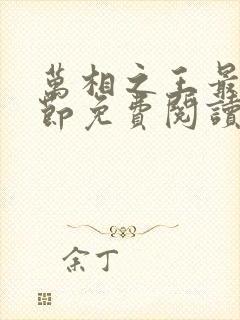 萬相之王最
節免費閱讀
余丁